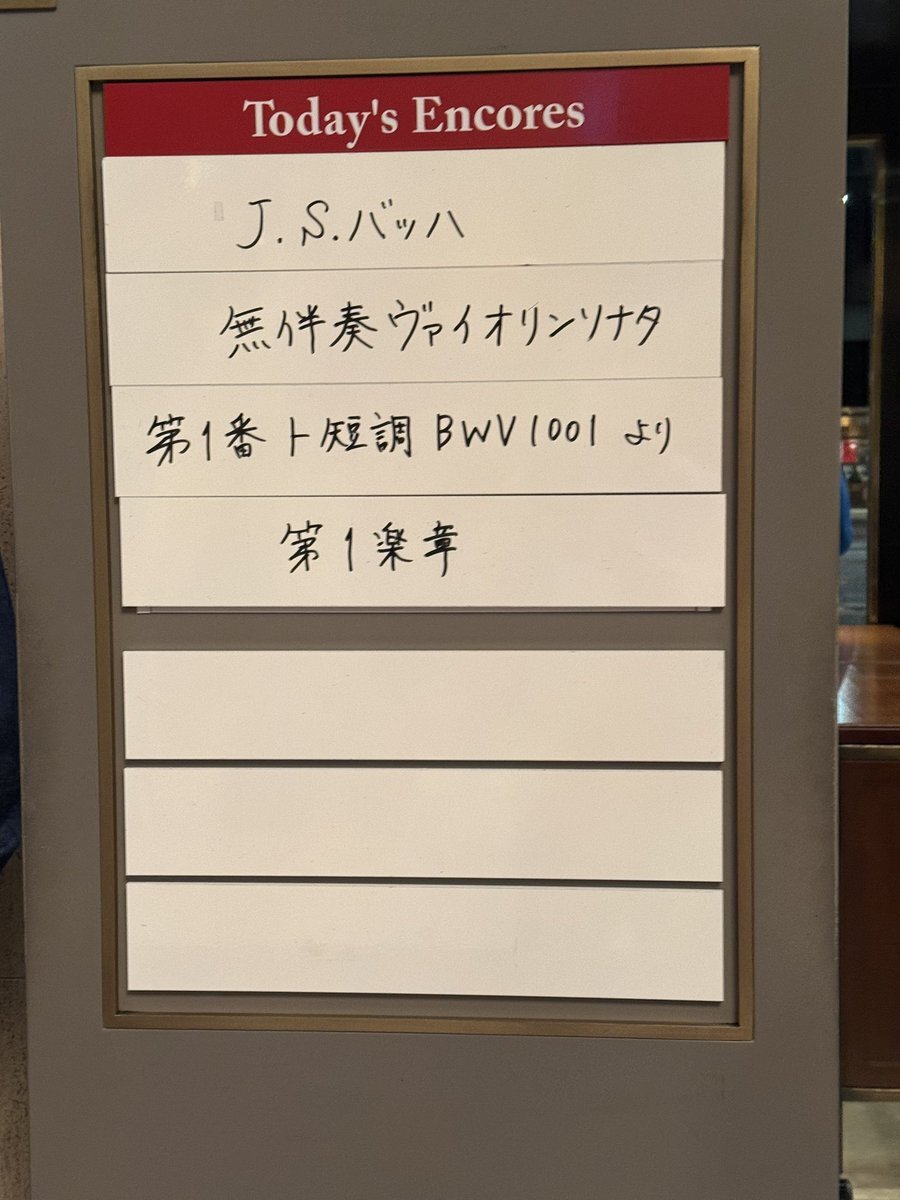 Today's Encores
J.S.バッハ
無伴奏ヴァイオリンソナタ
第1番 ト短調 BWV1001 より
第1楽章